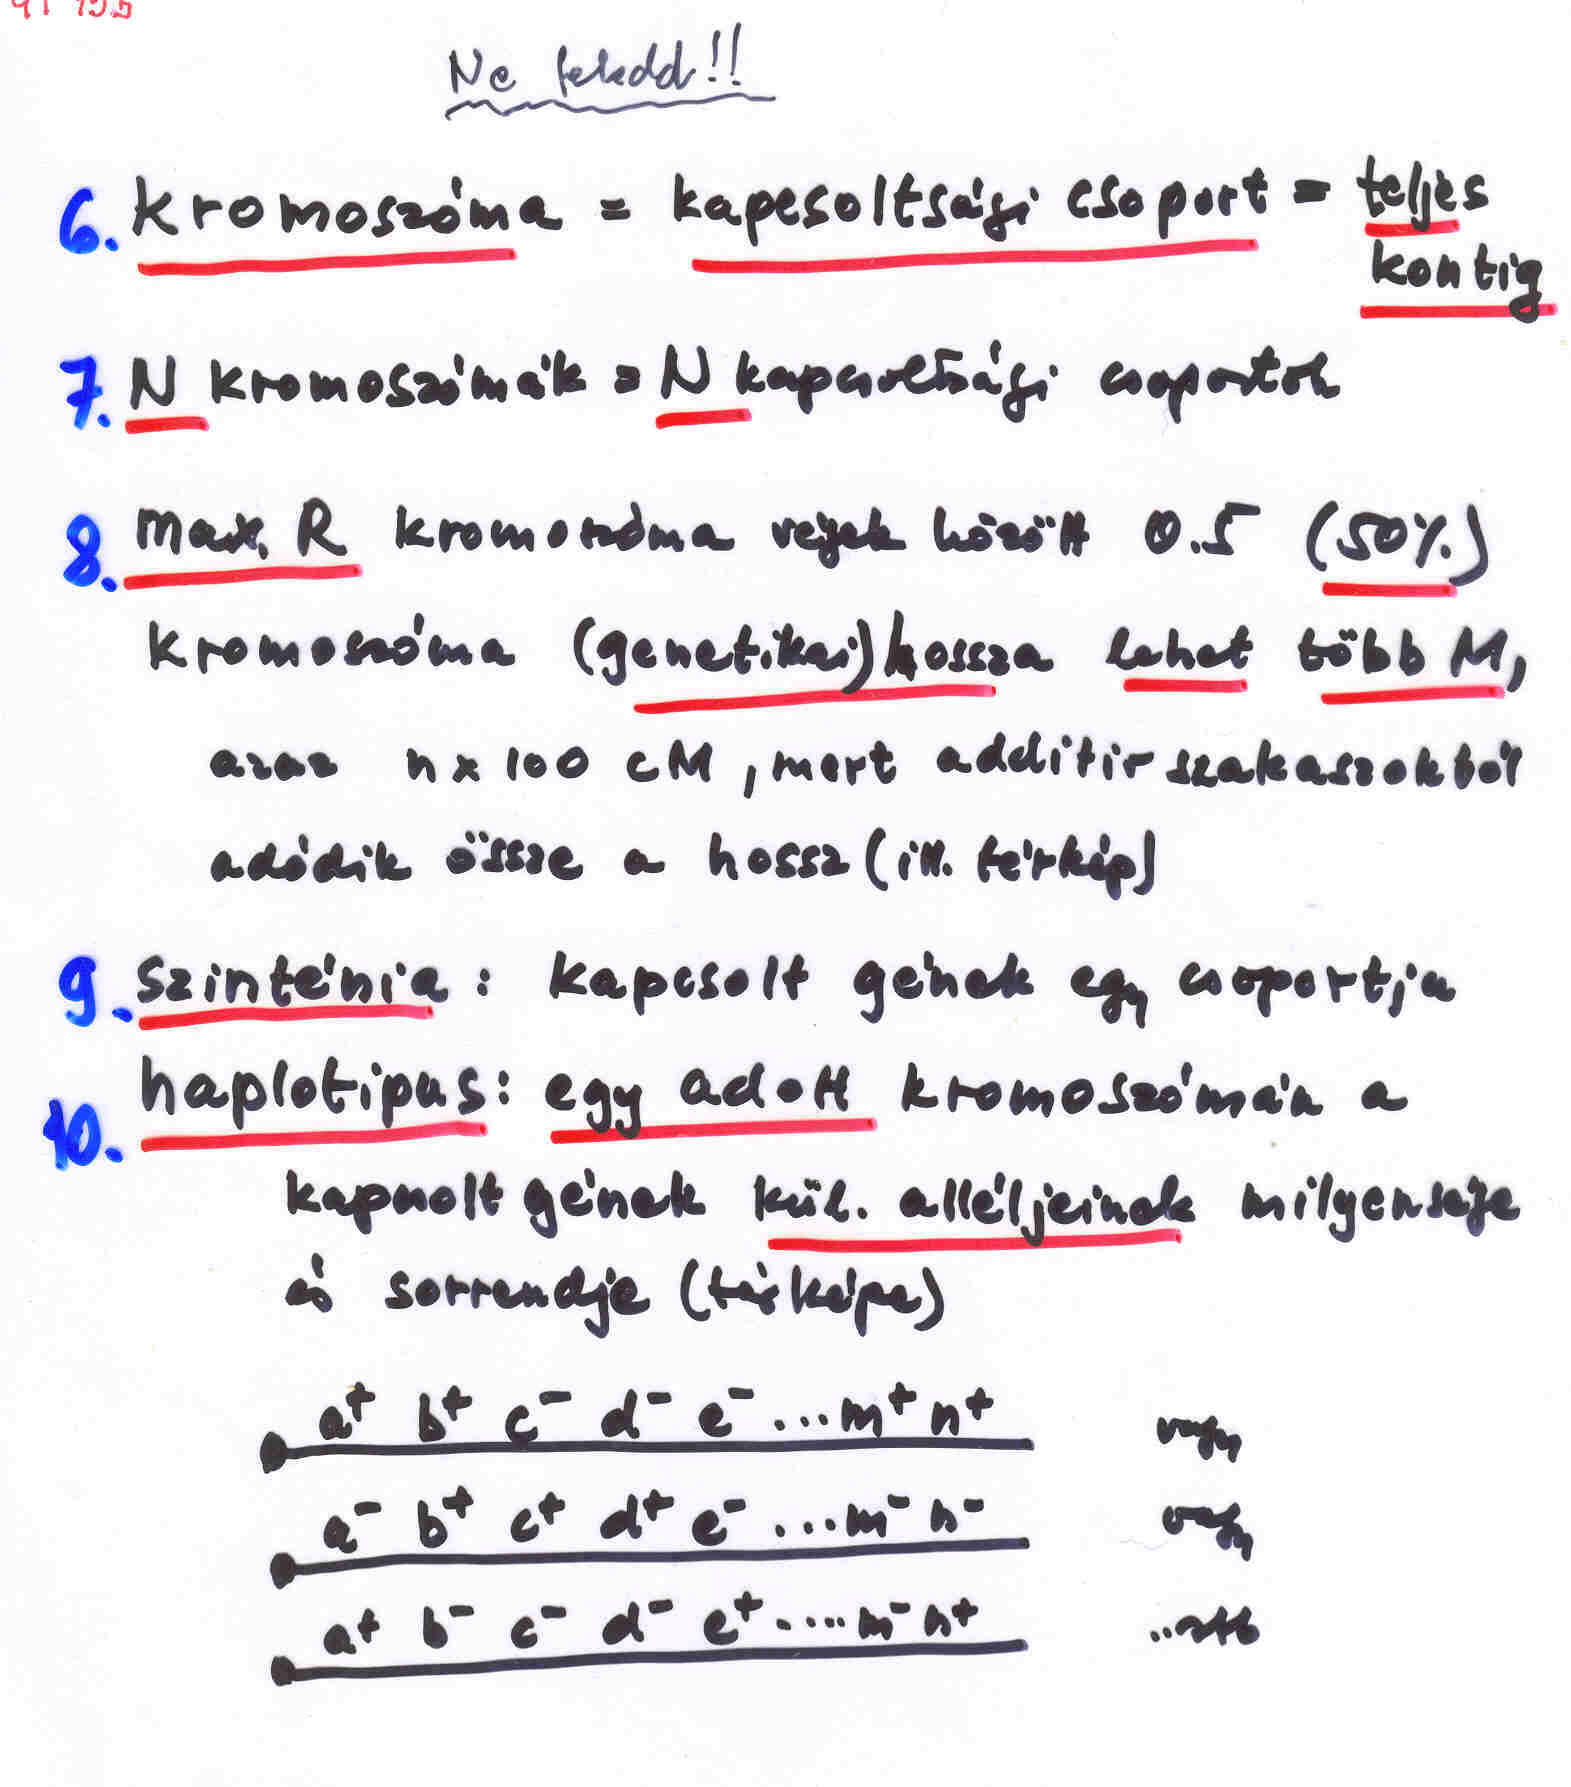 Ne feledd!!
6. kromoszóma = kapcsoltsági csoport = teljes
kontig
7. N kromoszómák = N kapcsoltsági csoportok
8. max. R kromoszóma végek között 0.5 (50%)
kromoszóma (genetikai) hossza lehet több M,
azaz n x 100 cM, mert additív szakaszokból
adódik össze a hossz (ill. térkép)
9. szinténia: kapcsolt gének egy csoportja
10. haplotipus: egy adott kromoszómán a
kapcsolt gének kül. alléljeinek milyensége
és sorrendje (térképe)
a+ b+ c- d- e- ...m+ n+ vagy
a- b+ c+ d+ e- ...m- n- vagy
a+ b- c- d- e+ ....m- n+ ..stb